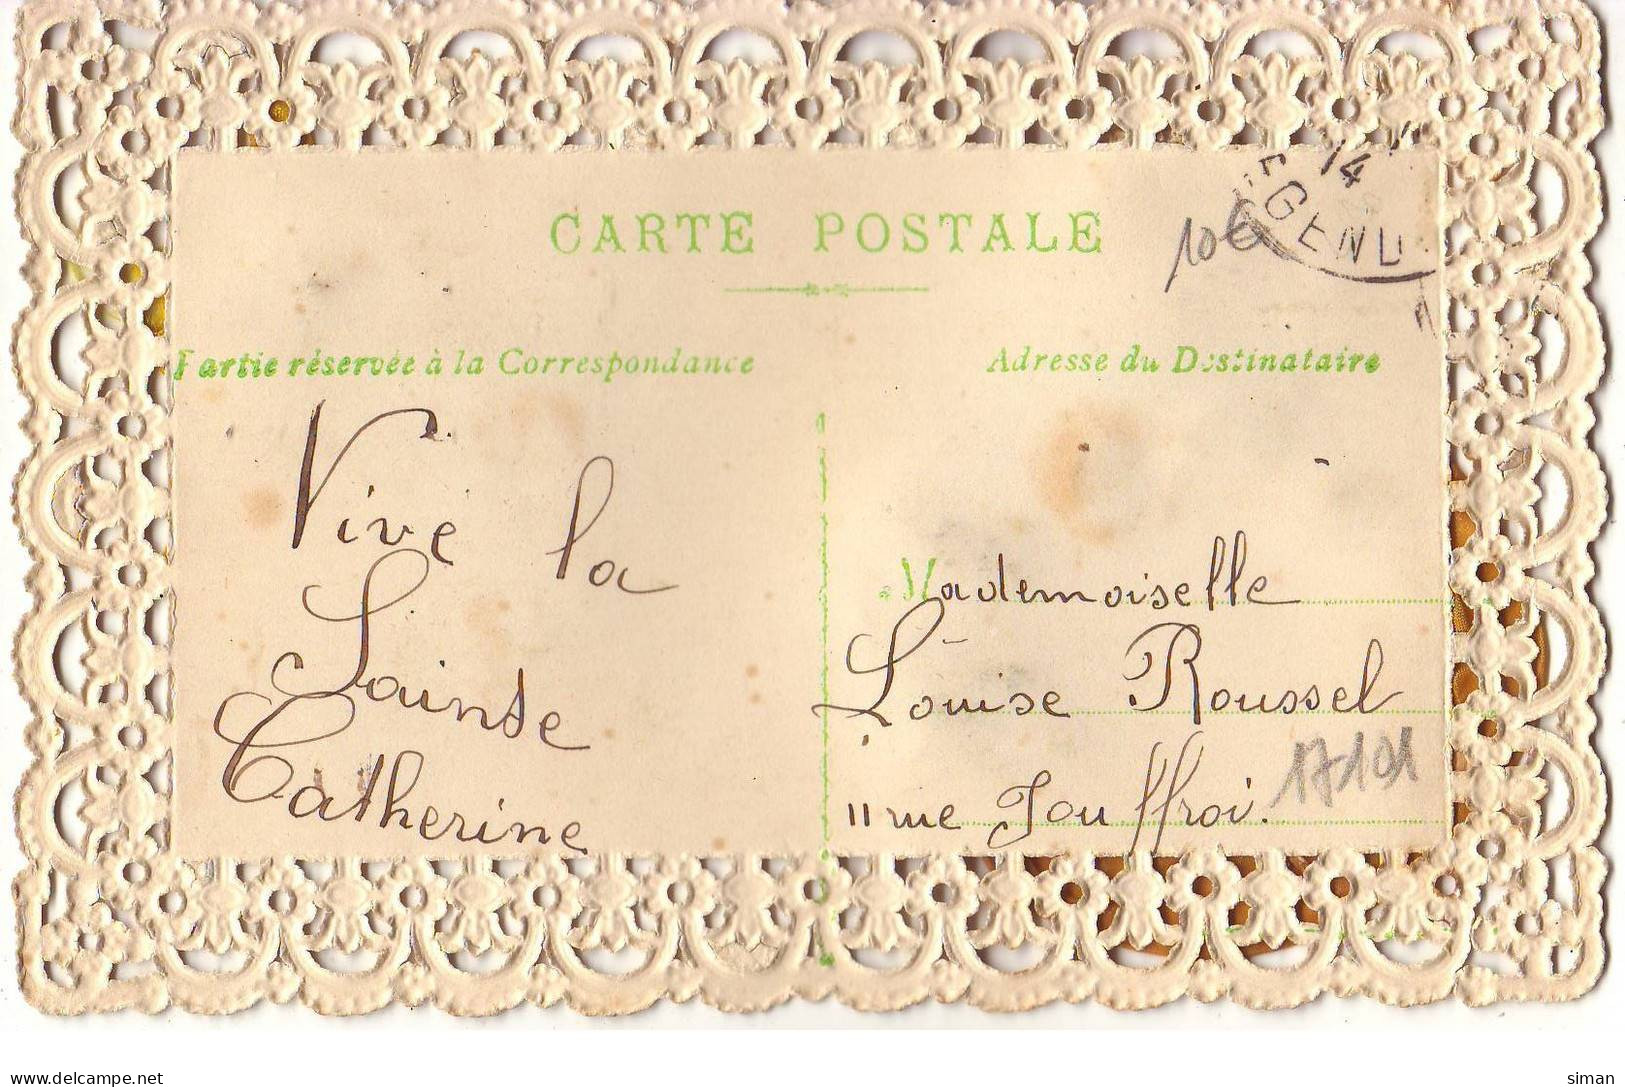 CARTE POSTALE
14
EGENU
10€
Partie réservée à la Correspondance
Adresse du Destinataire
Vive la
Sainte
Catherine
Mademoiselle
Louise Roussel
11 rue Jouffroi.
17101
delcampe.net
siman